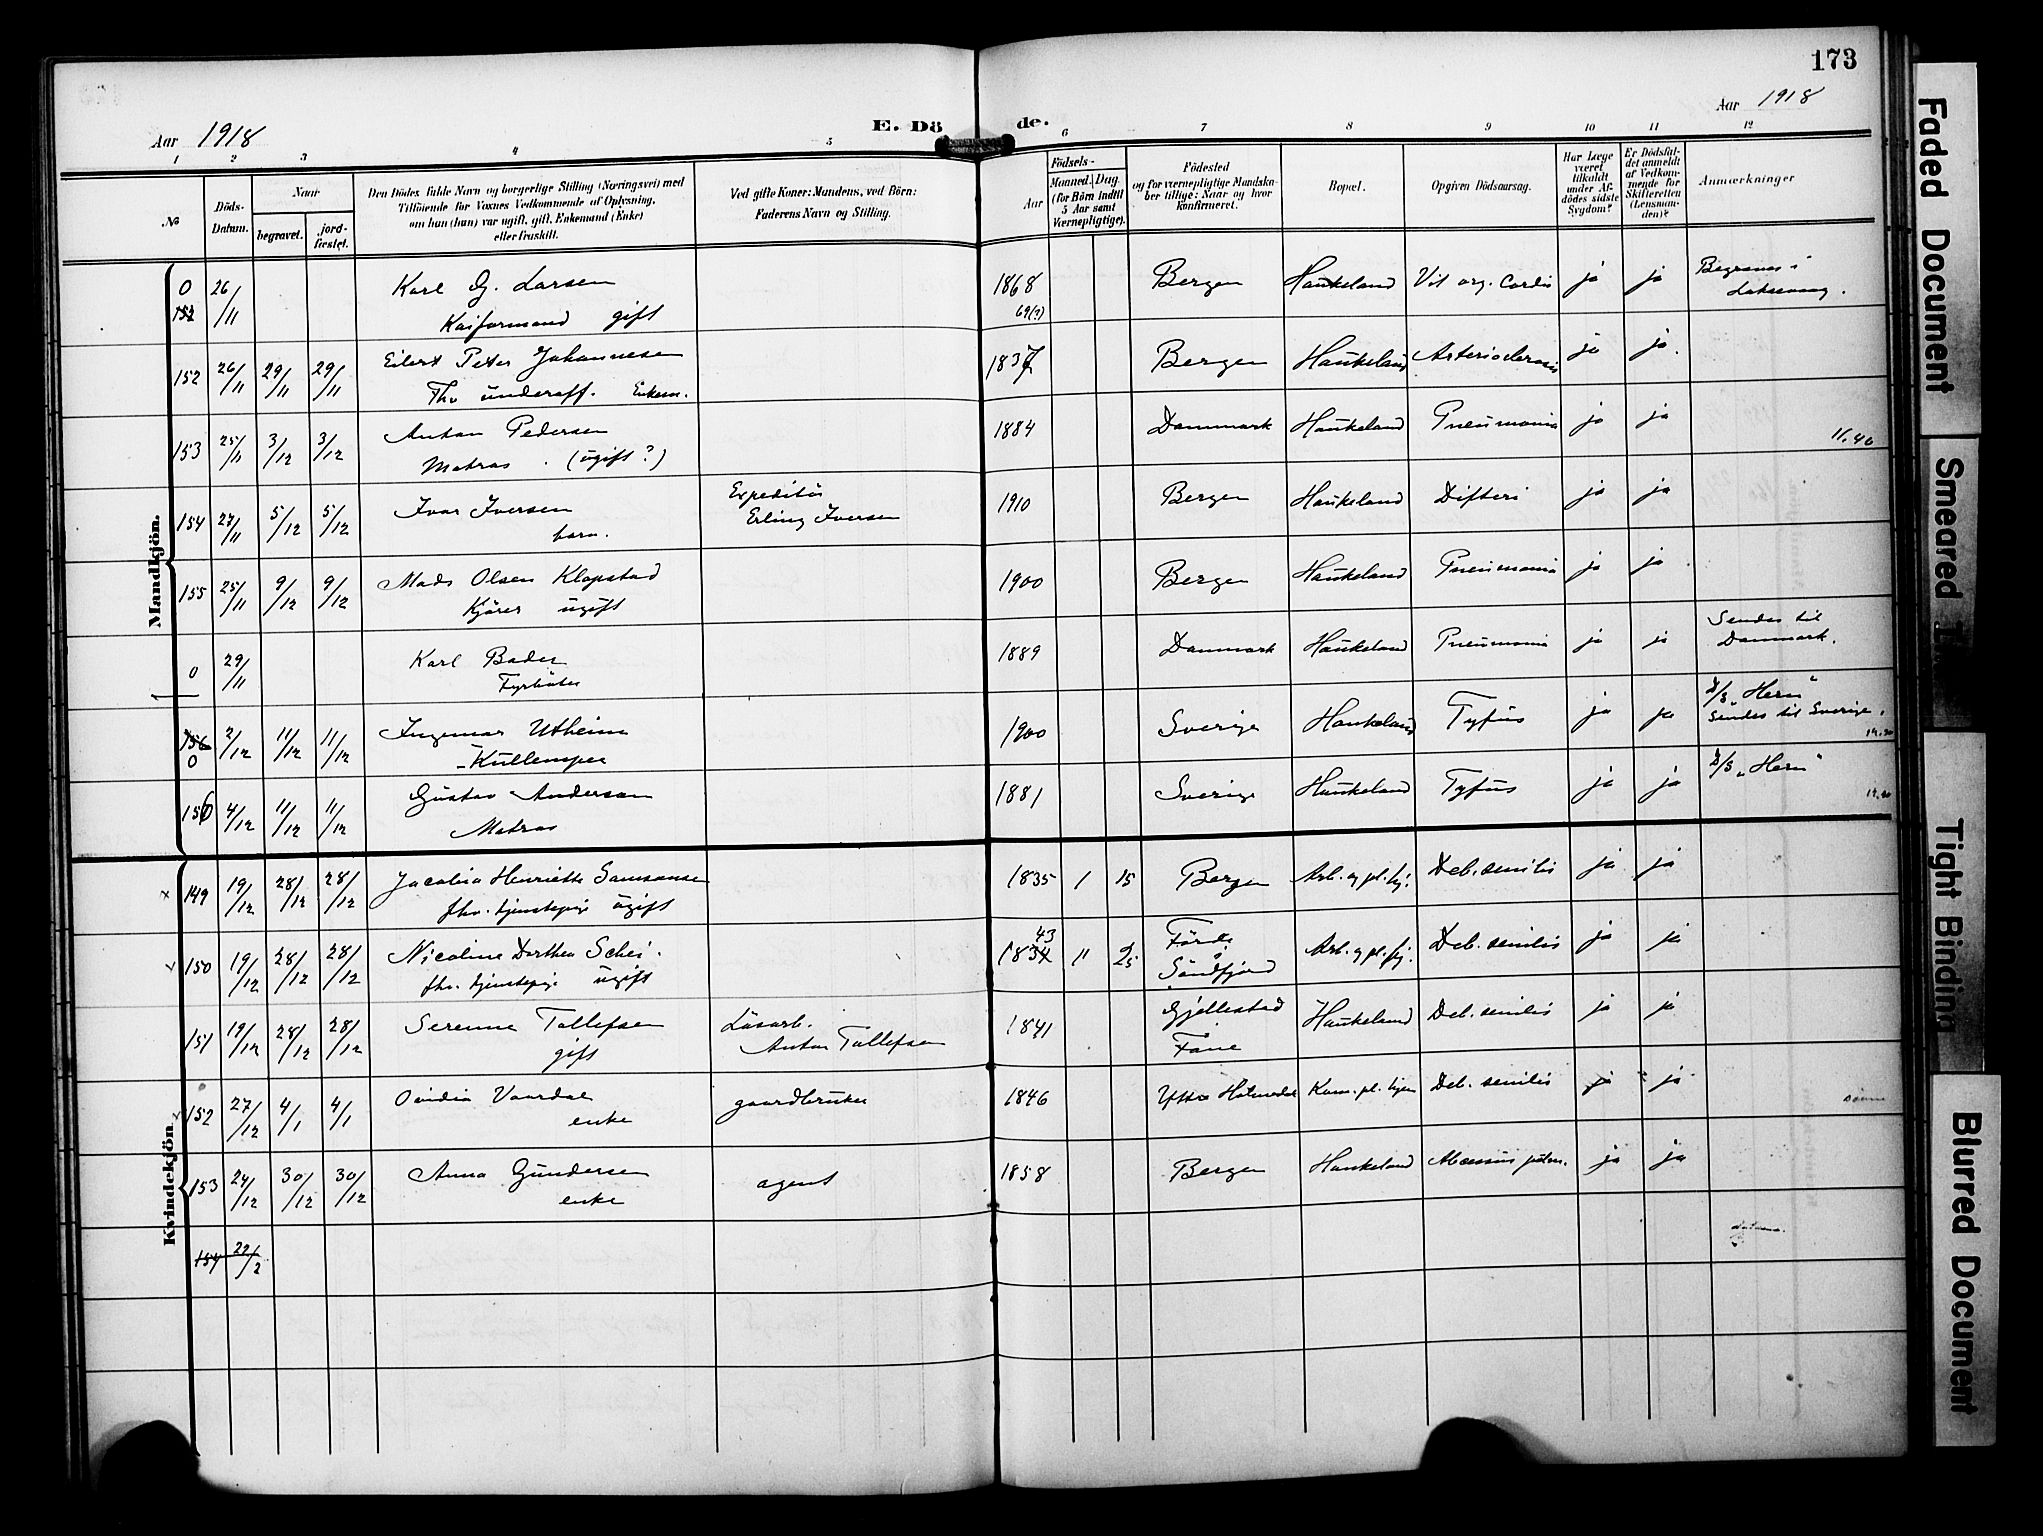 173
Aar 1918
E. Döde.
Aar 1918
1 2 3 4 5 6 7 8 9 10 11 12
No
Döds-Datum.
Naar
begravet.
jord-fæstet.
Den Dödes fulde Navn og borgerlige Stilling (Næringsvei) med
Tilföiende for Voxnes Vedkommende af Oplysning,
om hun (han) var ugift, gift, Enkemand (Enke)
eller fraskilt.
Ved gifte Koner: Mandens, ved Börn:
Faderens Navn og Stilling.
Födsels-
Aar
Maaned. Dag.
(for Börn indtil
5 Aar samt
Værnepligtige).
Födested
og for værnepligtige Mandska-
ber tillige: Naar og hvor
konfirmeret.
Bopæl.
Opgiven Dödsaarsag.
Har Læge
været
tilkaldt
under Af-
dödes sidste
Sygdom?
Er Dödsfal-
det anmeldt
af Vedkom-
mende for
Skifteretten
(Lensman-
den)?
Anmærkninger
Mandkjön.
0 26/11 Karl G. Larsen 1868 Bergen Haukeland Vit. org. Cordis ja ja Begraves i
152 Kaiformand gift 69(?) Laksevaag.
152 26/11 29/11 29/11 Eilert Peter Johannesen 1837 Bergen Haukeland Arteriosclerosis ja ja
Fhv underoff. Enkem.
153 25/11 3/12 3/12 Anton Pedersen 1884 Danmark Haukeland Pneumonia ja ja
Matros. (ugift?) 11.40
154 27/11 5/12 5/12 Ivar Iversen Expeditör 1910 Bergen Haukeland Difteri ja ja
barn. Erling Iversen
155 25/11 9/12 9/12 Mads Olsen Klopstad 1900 Bergen Haukeland Pneumonia ja ja
Kjörer ugift
0 29/11 Karl Bader 1889 Danmark Haukeland Pneumonia ja ja Sendes til
Fyrböter Danmark.
156 2/12 11/12 11/12 Ingemar Utheim 1900 Sverige Haukeland Tyfus ja ja D/S „Hern"
0 Kullemper Sendes til Sverige.
156 4/12 11/12 11/12 Gustav Andersson 1881 Sverige Haukeland Tyfus ja ja D/S „Hern"
Matros
Kvindekjön.
149 19/12 28/12 28/12 Jacobia Henriette Samsonsen 1835 1 15 Bergen Arb. og pl. hj. Deb. senilis ja ja
fhv. tjenstepige ugift
150 19/12 28/12 28/12 Nicoline Dorthea Schei. 43 1834 11 25 Förde Arb. og pl. hj. Deb. senilis ja ja
fhv. tjenstepige ugift Söndfjord
151 19/12 28/12 28/12 Serenne Tollefsen Lösarb. 1841 Gjellestad Haukeland Deb. senilis ja ja
gift Anton Tollefsen Fane
152 27/12 4/1 4/1 Ovidia Vaardal gaardbruker 1846 Ytre Holmedal Kom. pl. hjem Deb. senilis ja ja
enke
153 24/12 30/12 30/12 Anna Gundersen agent 1858 Bergen Haukeland Abcessus pulm. ja ja
enke
154 22/2
Faded Document
Smeared
Tight Binding
Blurred Document